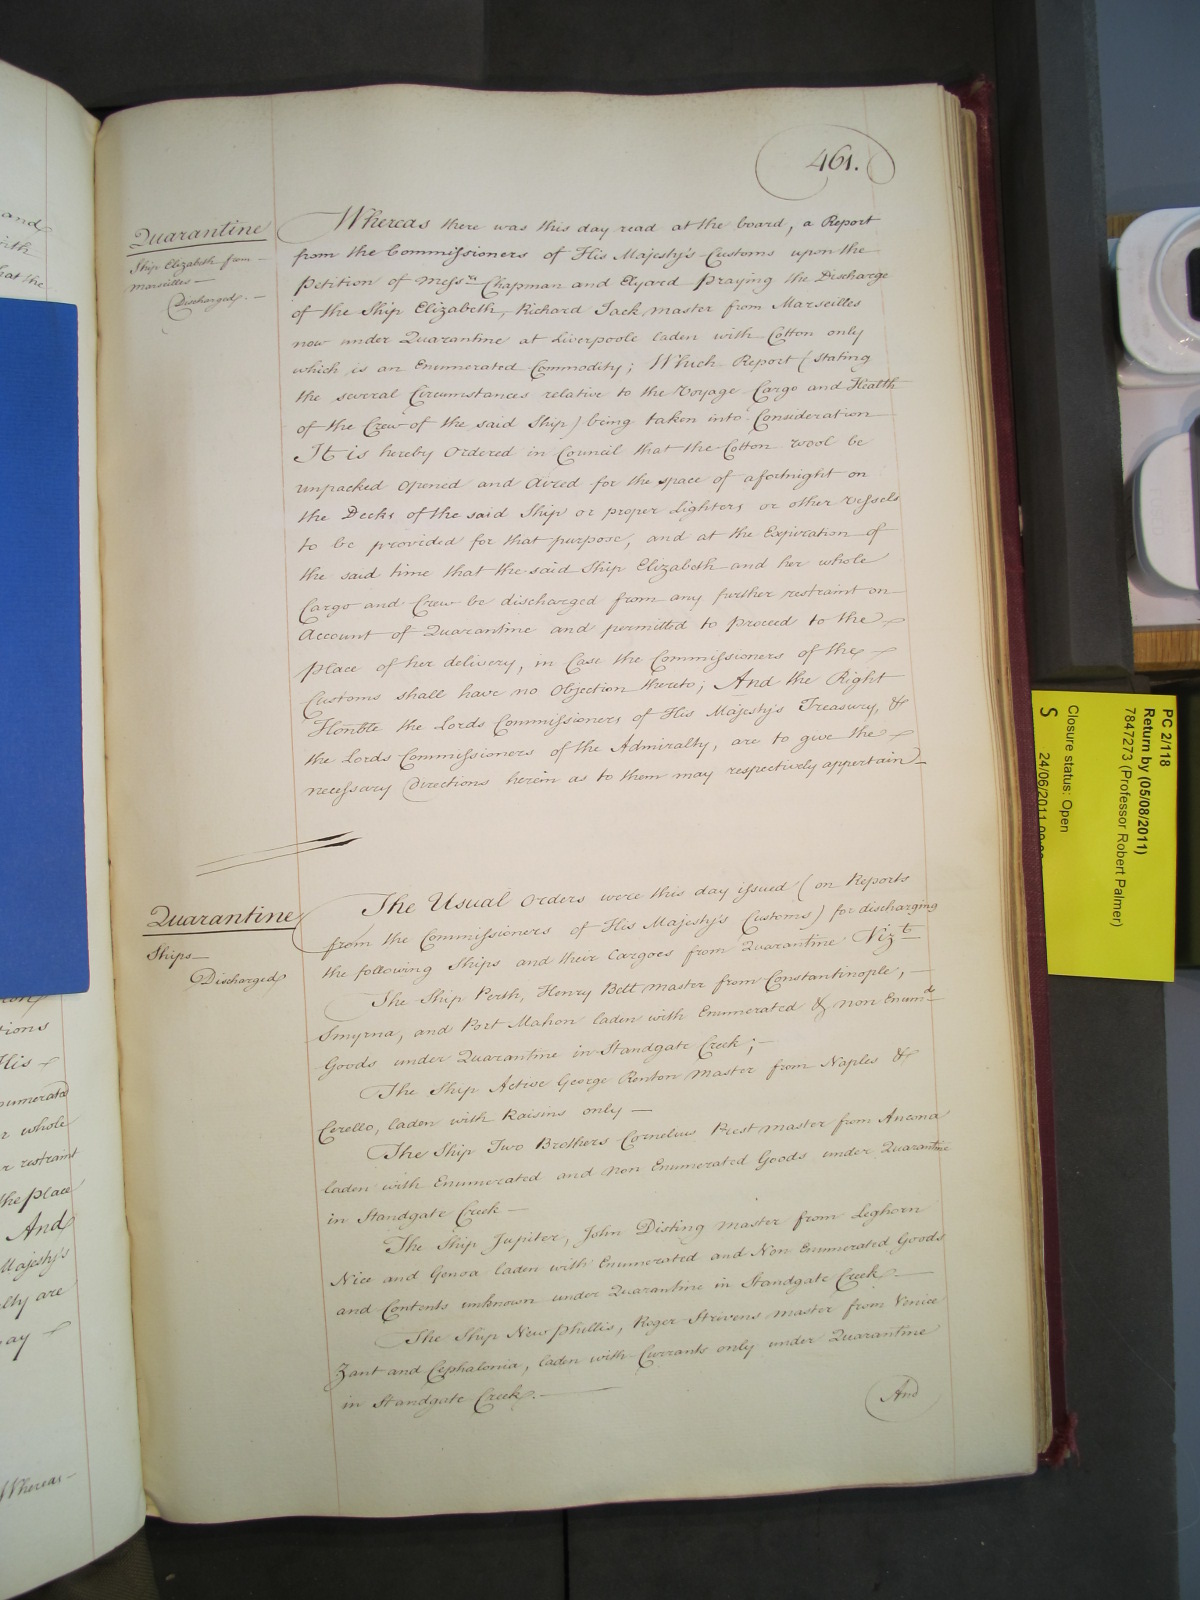 461.
Quarantine
Ship Elizabeth from
Marseilles
Discharged.
Whereas there was this day read at the board, a Report
from the Commissioners of His Majesty's Customs upon the
Petition of Messrs Chapman and Elyard Praying the Discharge
of the Ship Elizabeth, Richard Jack master from Marseilles
now under Quarantine at Liverpoole laden with Cotton only
which is an Enumerated Commodity; Which Report (stating
the several Circumstances relative to the Voyage Cargo and Health
of the Crew of the said Ship) being taken into Consideration
It is hereby Ordered in Council that the Cotton wool be
unpacked opened and Aired for the space of a fortnight on
the Decks of the said Ship or proper Lighters or other Vessels
to be provided for that purpose, and at the Expiration of
the said time that the said Ship Elizabeth and her whole
Cargo and Crew be discharged from any further restraint on
Account of Quarantine and permitted to proceed to the
Place of her delivery, in Case the Commissioners of the
Customs shall have no Objection thereto; And the Right
Honble the Lords Commissioners of His Majesty's Treasury, &
the Lords Commissioners of the Admiralty, are to give the
necessary Directions herein as to them may respectively appertain
Quarantine
Ships
Discharged
The Usual Orders were this day issued (on Reports
from the Commissioners of His Majesty's Customs) for discharging
the following Ships and their Cargoes from Quarantine Vizt
The Ship Perth, Henry Bett master from Constantinople,
Smyrna, and Port Mahon laden with Enumerated & non Enumd
Goods under Quarantine in Standgate Creek;
The Ship Active George Renton Master from Naples &
Cerello, laden with Raisins only
The Ship Two Brothers Cornelius Prest master from Ancona
laden with Enumerated and non Enumerated Goods under Quarantine
in Standgate Creek
The Ship Jupiter, John Disting master from Leghorn
Nice and Genoa laden with Enumerated and Non Enumerated Goods
and Contents unknown under Quarantine in Standgate Creek.
The Ship New Phillis, Roger Strivens master from Venice
Zant and Cephalonia, laden with Currants only under Quarantine
in Standgate Creek.
And
and
hat the
tions
His
whole
restraint
the place
And
Majesty's
lty are
may
Whereas
PC 2/118
Return by (05/08/2011)
7847273 (Professor Robert Palmer)
Closure status: Open
S
24/06/2011